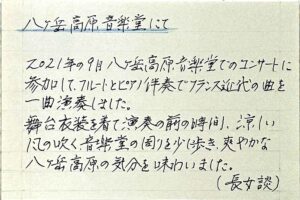 八ヶ岳高原音楽堂にて
2021年の9月 八ヶ岳高原音楽堂でのコンサートに
参加して、フルートとピアノ伴奏でフランス近代の曲を
一曲演奏しました。
舞台衣装を着て演奏の前の時間、涼しい
風の吹く音楽堂の周りを少し歩き、爽やかな
八ヶ岳高原の気分を味わいました。
(長女談)